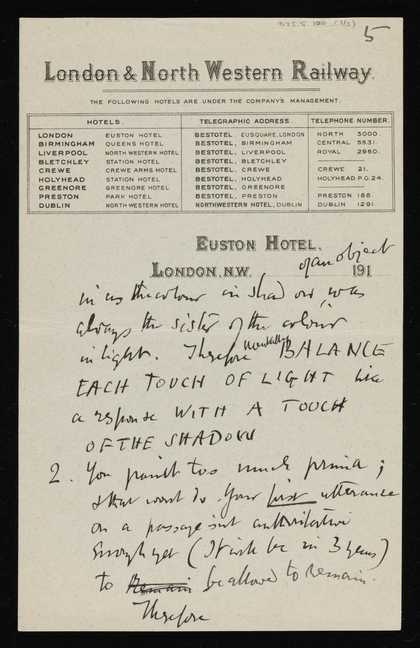 5
London & North Western Railway.
THE FOLLOWING HOTELS ARE UNDER THE COMPANY'S MANAGEMENT.
HOTELS. TELEGRAPHIC ADDRESS. TELEPHONE NUMBER.
LONDON EUSTON HOTEL BESTOTEL, EUSQUARE, LONDON NORTH 3000.
BIRMINGHAM QUEENS HOTEL BESTOTEL, BIRMINGHAM CENTRAL 5531.
LIVERPOOL NORTH WESTERN HOTEL BESTOTEL, LIVERPOOL ROYAL 2960.
BLETCHLEY STATION HOTEL BESTOTEL, BLETCHLEY
CREWE CREWE ARMS HOTEL BESTOTEL, CREWE CREWE 21.
HOLYHEAD STATION HOTEL BESTOTEL, HOLYHEAD HOLYHEAD P.O. 24.
GREENORE GREENORE HOTEL BESTOTEL, GREENORE
PRESTON PARK HOTEL BESTOTEL, PRESTON PRESTON 166.
DUBLIN NORTH WESTERN HOTEL NORTHWESTERN HOTEL, DUBLIN DUBLIN 1291.
EUSTON HOTEL,
LONDON, N.W. 191
of an object
in as the colour in shadow, was
always the sister of the colour
in light. Therefore BALANCE
EACH TOUCH OF LIGHT like
a response WITH A TOUCH
OF THE SHADOW
2. You paint too much prima;
that won't do. Your first utterance
on a passage isn't authoritative
enough yet (It will be in 3 years)
to Remain be allowed to remain.
Therefore